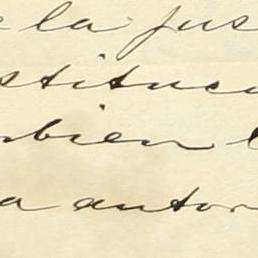 e la jus
stituci
nbien l
a autor